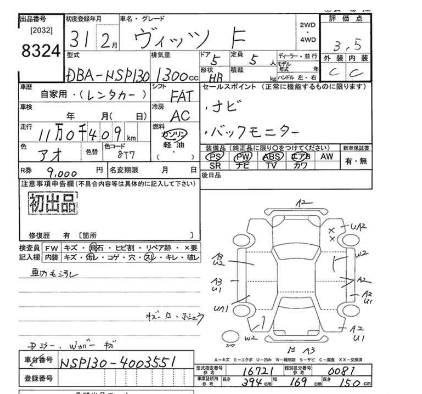 出品番号 初度登録年月 車名・グレード 2WD ・ 4WD 評価点
[2032] 31 2月 ヴィッツ F 3.5
8324 型式 排気量 ドア 定員 ディーラー・並行 外装 内装
DBA-NSP130 1300cc 5 5人 C C
形状 HB 積載 kg ハンドル 左・右
車歴 自家用・(レンタカー) シフト FAT セールスポイント (正常に機能するものに限ります)
車検 年 月( 日) 冷房 AC ・ナビ
走行 11万0千409km 燃料 ガソリン 軽油 ・バックモニター
色 アオ 色替 カラーNo. 8T7
装備品 (純正品に限り〇をつけてください) 新車保証書
PS PW ABS エアB AW 有・無
SR ナビ TV カワ
R券 9,000円 名変期限 月 日 後日品
注意事項申告欄(不具合内容等は具体的に記入して下さい)
初出品
修復歴 有〔箇所〕
検査員記入欄 FW キズ・飛石・ヒビ割・リペア跡・×要
内装 キズ・汚レ・コゲ・穴・スレ・キレ・破レ
A2
UA2
W2
A3
U1
A2
UA1
A2
U1
W2
A3
A=キズ E=エクボ U=凹み W=補修跡 S=サビ C=腐食 XX=交換済
車台番号 NSP130-4003551
型式指定番号 16721 類別区分番号 0087
登録番号
長さ 394cm 幅 169cm 高さ 150cm